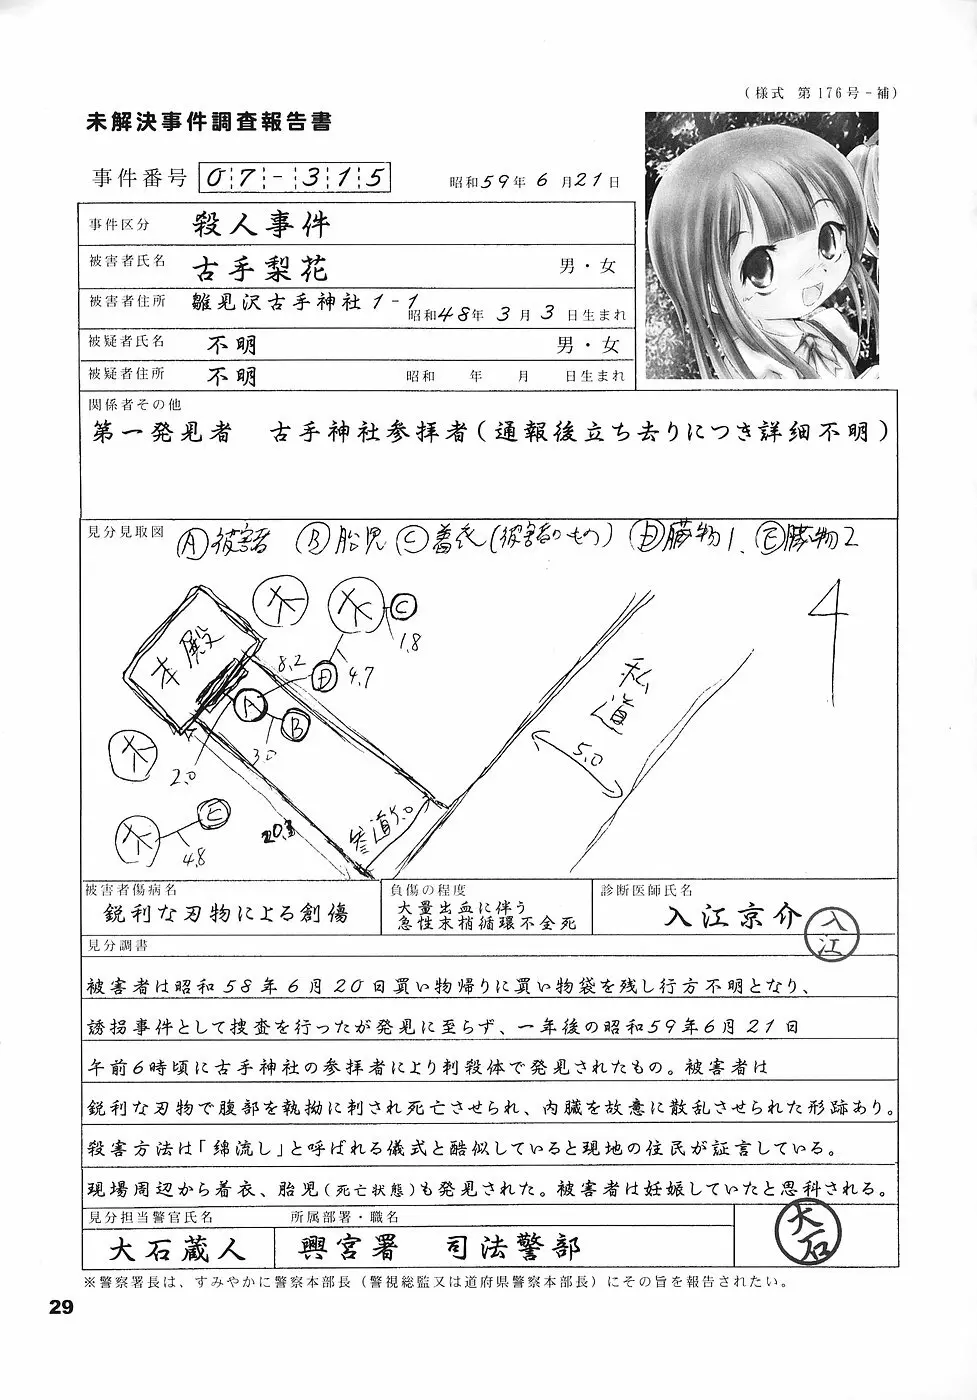 (様式 第176号-補)
未解決事件調査報告書
事件番号 07-315 昭和59年 6月21日
事件区分 殺人事件
被害者氏名 古手梨花 男・女
被害者住所 雛見沢古手神社1-1 昭和48年 3月 3日生まれ
被疑者氏名 不明 男・女
被疑者住所 不明 昭和 年 月 日生まれ
関係者その他
第一発見者 古手神社参拝者(通報後立ち去りにつき詳細不明)
見分見取図 Ⓐ被害者 Ⓑ胎児 Ⓒ着衣(被害者のもの) Ⓓ臓物1、Ⓔ臓物2
4
木
木
C
1.8
本殿
8.2
D
4.7
私道
A
B
3.0
5.0
木
2.0
E
木
4.8
20.3
参道5.0
被害者傷病名 負傷の程度 診断医師氏名
鋭利な刃物による創傷
大量出血に伴う
急性末梢循環不全死
入江京介
入江
見分調書
被害者は昭和58年6月20日買い物帰りに買い物袋を残し行方不明となり、
誘拐事件として捜査を行ったが発見に至らず、一年後の昭和59年6月21日
午前6時頃に古手神社の参拝者により刺殺体で発見されたもの。被害者は
鋭利な刃物で腹部を執拗に刺され死亡させられ、内臓を故意に散乱させられた形跡あり。
殺害方法は「綿流し」と呼ばれる儀式と酷似していると現地の住民が証言している。
現場周辺から着衣、胎児(死亡状態)も発見された。被害者は妊娠していたと思料される。
見分担当警官氏名 所属部署・職名
大石蔵人 興宮署 司法警部
大石
※警察署長は、すみやかに警察本部長(警視総監又は道府県警察本部長)にその旨を報告されたい。
29